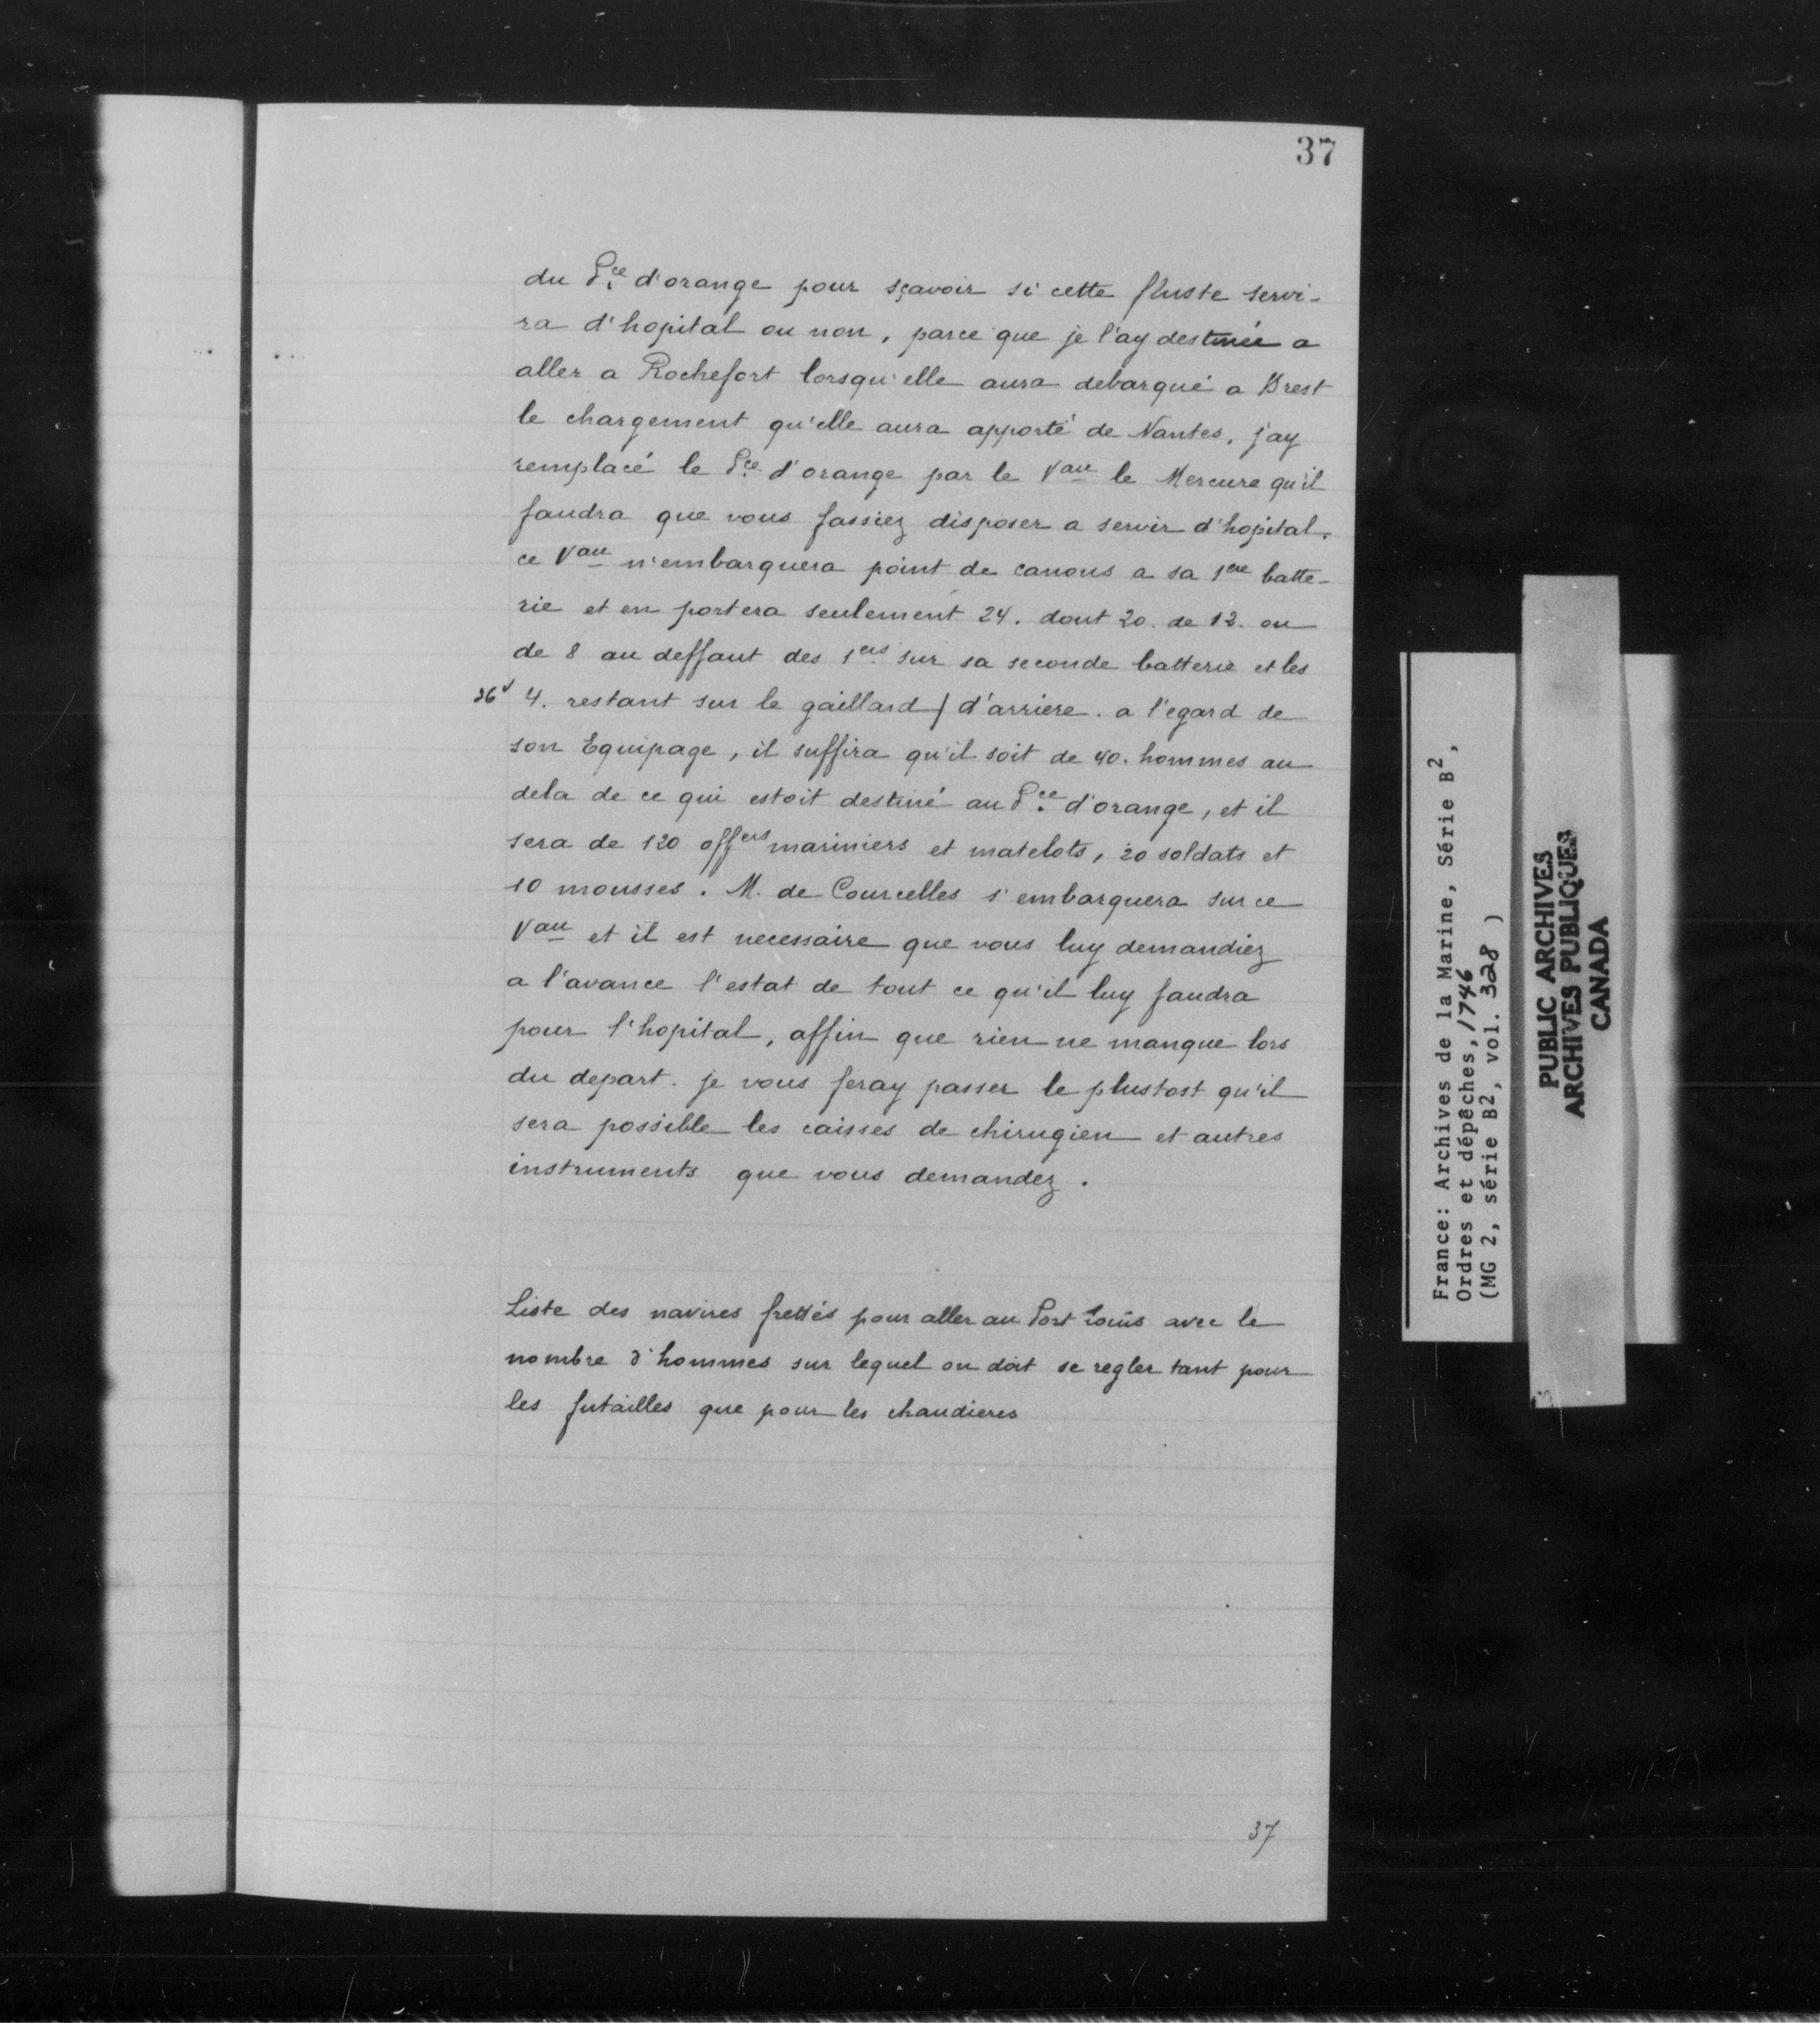 37
du Pce d'orange pour sçavoir si cette fluste servi-
ra d'hopital ou non, parce que je l'ay destinée a
aller a Rochefort lorsqu'elle aura debarqué a Brest
le chargement qu'elle aura apporté de Nantes, j'ay
remplacé le Pce d'orange par le Vau le Mercure qu'il
faudra que vous fassiez disposer a servir d'hopital.
ce Vau n'embarquera point de canons a sa 1ere batte-
rie et en portera seulement 24. dont 20. de 12. ou
de 8 au deffaut des 1ers sur sa seconde batterie et les
36v 4. restant sur le gaillard / d'arriere. a l'egard de
son Equipage, il suffira qu'il soit de 40. hommes au
dela de ce qui estoit destiné au Pce d'orange, et il
sera de 120 offers mariniers et matelots, 20 soldats et
10 mousses. M. de Courcelles s'embarquera sur ce
Vau et il est necessaire que vous luy demandiez
a l'avance l'estat de tout ce qu'il luy faudra
pour l'hopital, affin que rien ne manque lors
du depart. je vous feray passer le plustost qu'il
sera possible les caisses de chirugien et autres
instruments que vous demandez.
Liste des navires frettés pour aller au Port Louis avec le
nombre d'hommes sur lequel on doit se regler tant pour
les futailles que pour les chaudieres
37
France: Archives de la Marine, Série B2,
Ordres et dépêches, 1746
(MG 2, série B2, vol. 328 )
PUBLIC ARCHIVES
ARCHIVES PUBLIQUES
CANADA